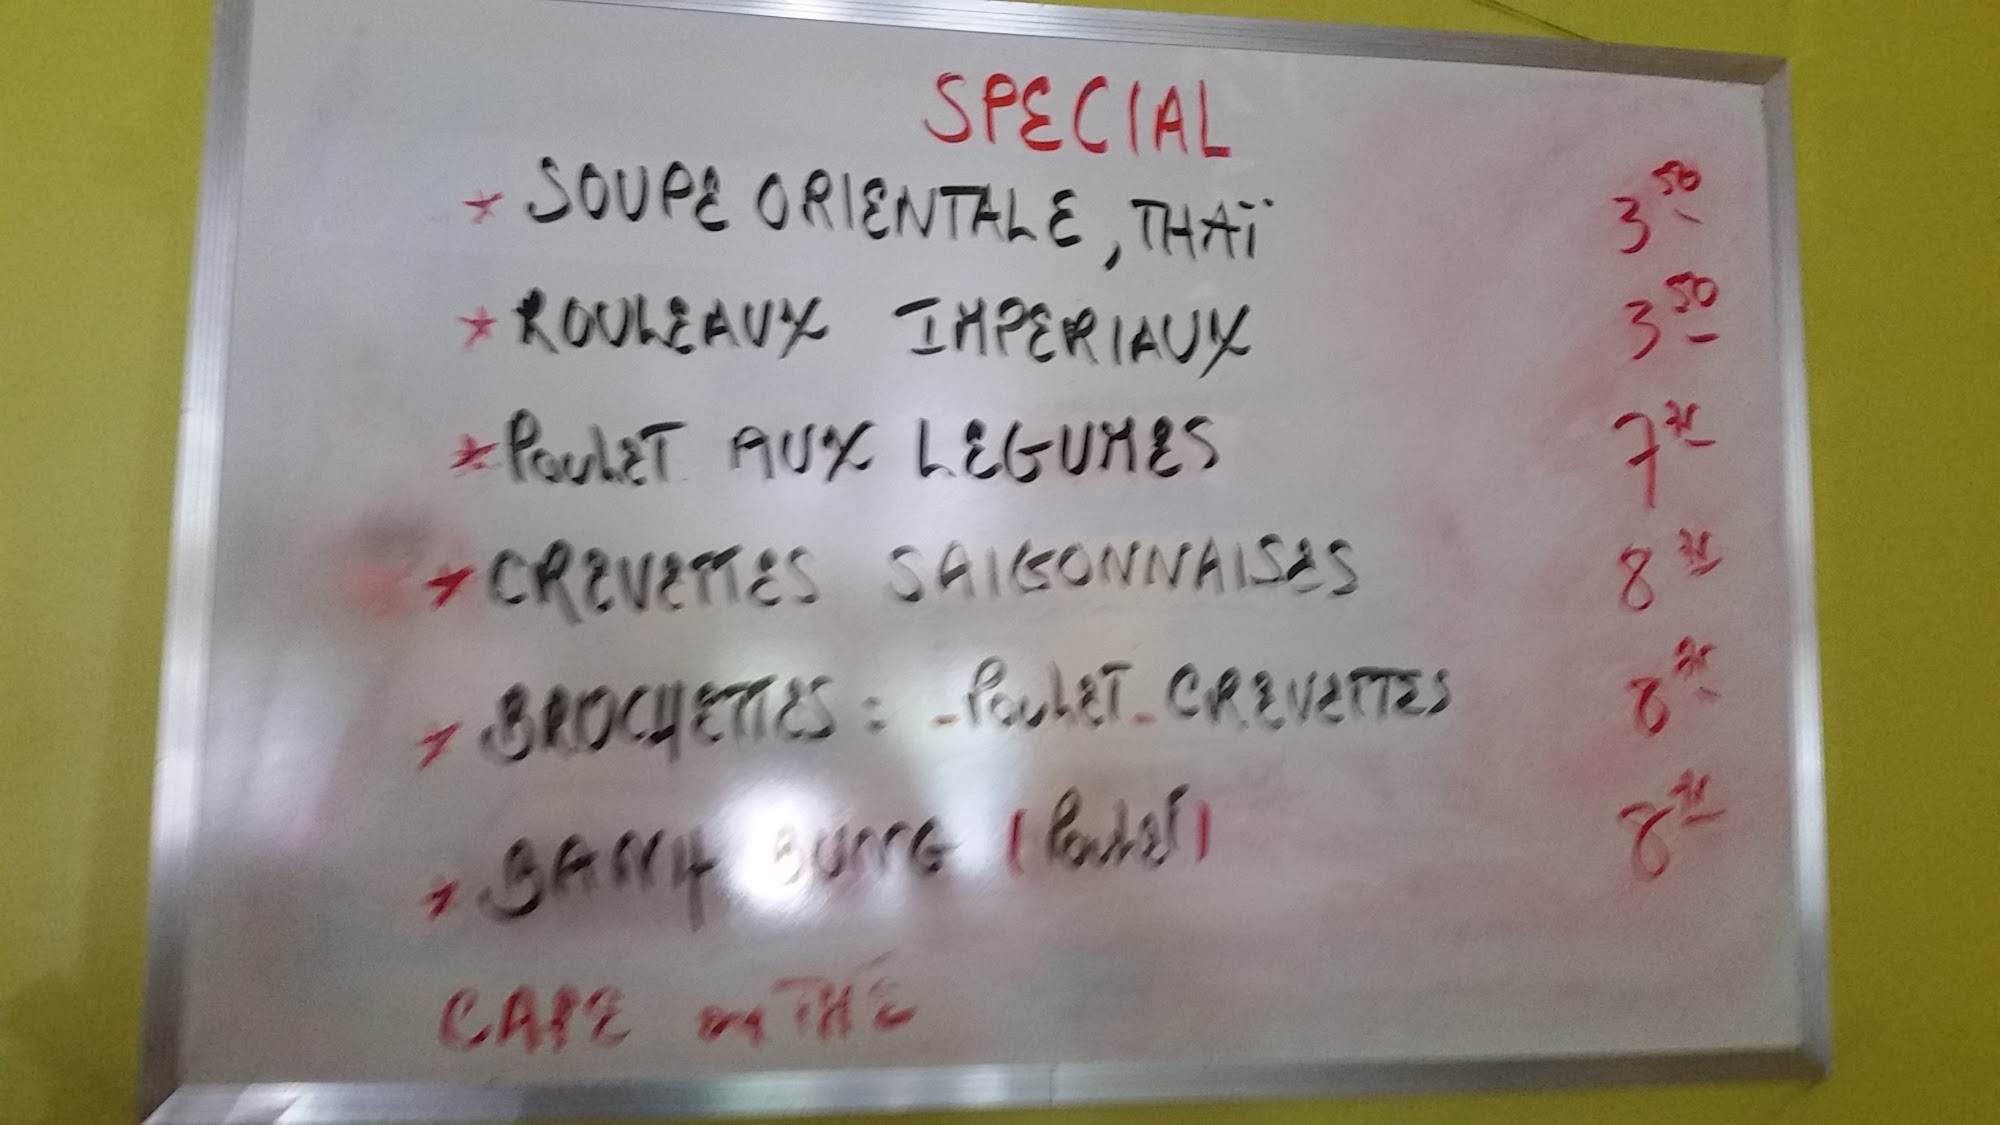 SPECIAL
* SOUPE ORIENTALE, THAÏ 3 50
* ROULEAUX IMPERIAUX 3 50
* POULET AUX LEGUMES 7 75
* CREVETTES SAIGONNAISES 8 75
* BROCHETTES : - POULET - CREVETTES 8 75
* BANH BUNG (POULET) 8 75
CAFE ou THÉ